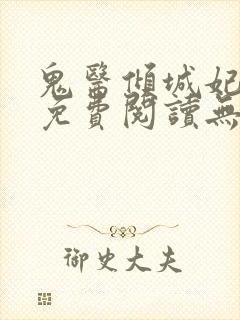 鬼醫傾城妃
免費閱讀無
御史大夫